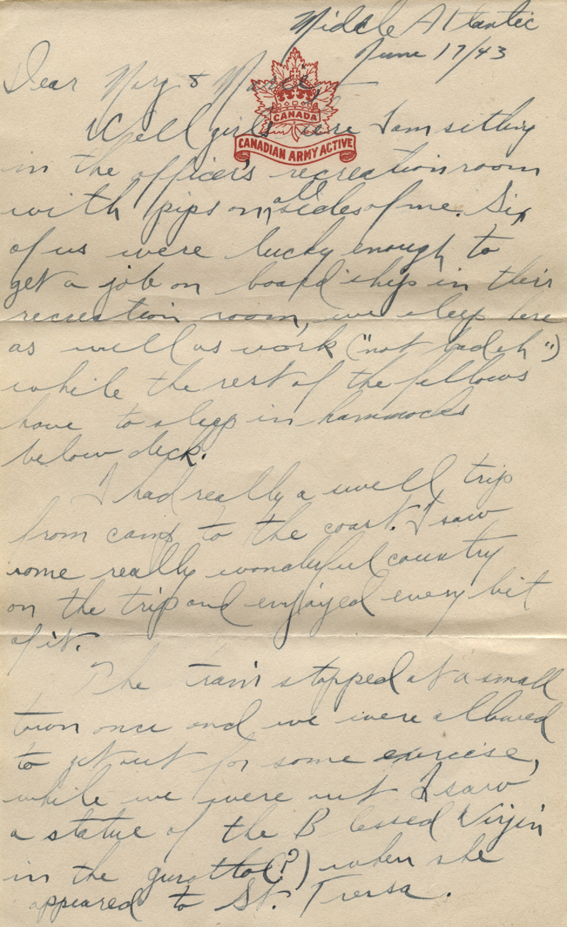 Middle Atlantic
June 17/43
CANADA
CANADIAN ARMY ACTIVE
Dear Mary &
Well girls here I am sitting
in the officer's recreation room
with pips on all sides of me. Six
of us were lucky enough to
get a job on board ship in their
recreation room, we sleep here
as well as work ("not bad eh")
while the rest of the fellows
have to sleep in hammocks
below deck.
I had really a swell trip
from camp to the coast. I saw
some really wonderful country
on the trip and enjoyed every bit
of it.
The train stopped at a small
town once and we were allowed
to get out for some exercise,
while we were out I saw
a statue of the Blessed Virgin
in the gurotto(?) when she
appeared to St. Tressa.